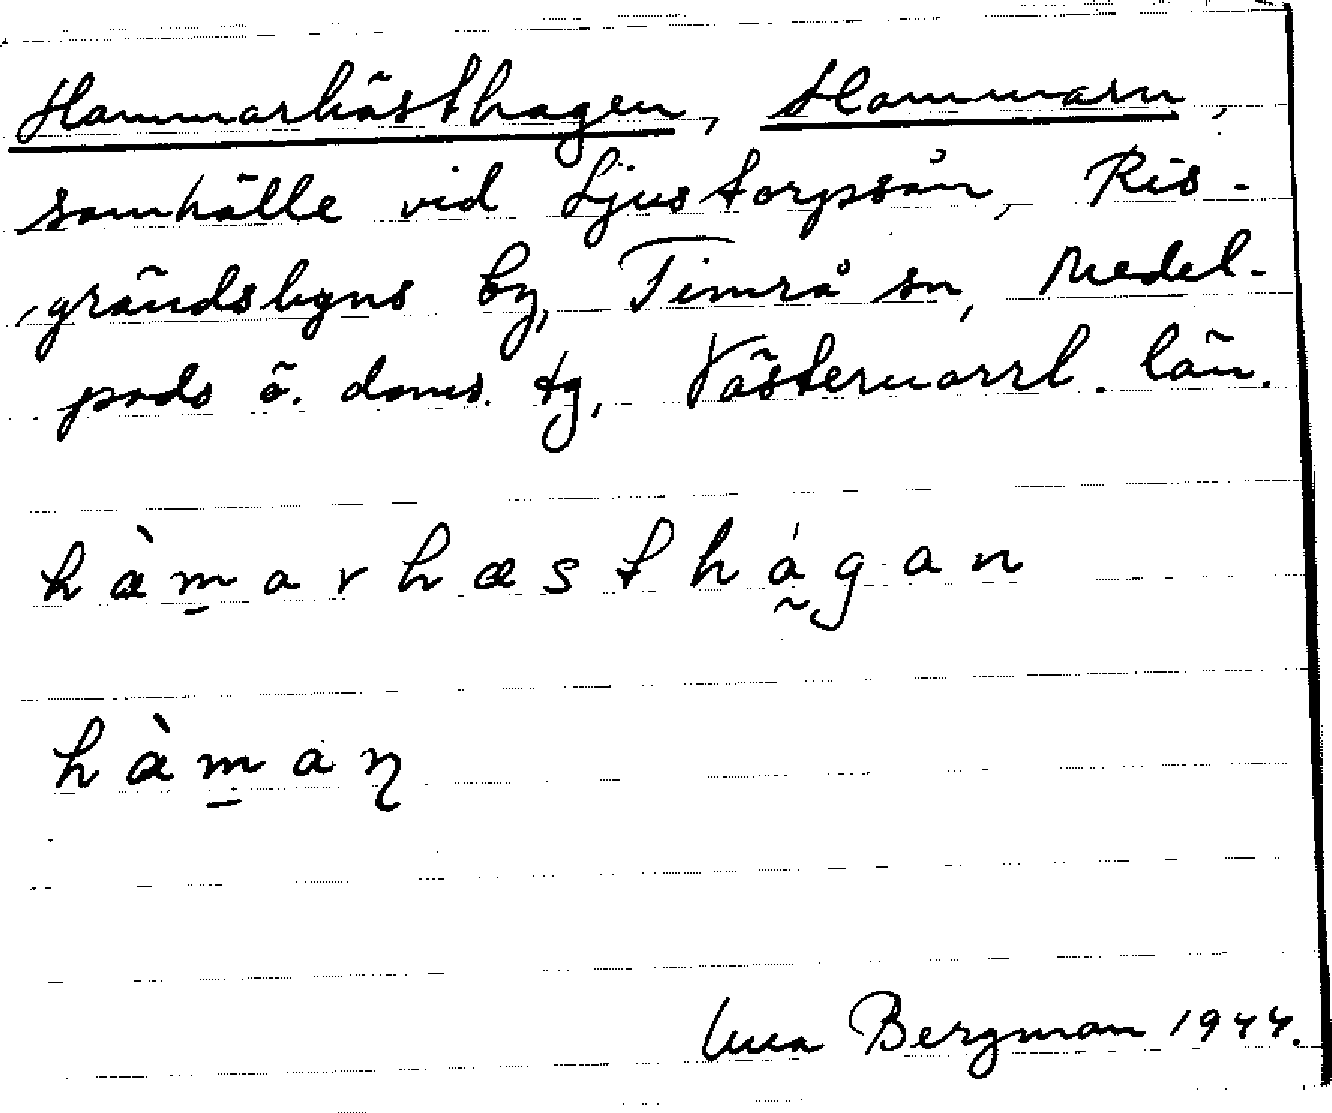 Hammarhästhagen, Hammarn,
samhälle vid Ljustorpsån, Ris-
grändsbyns by, Timrå sn, Medel-
pads ö. doms. tg, Västernorrl. län.
hàm̱arhæsthá̰gan
hàm̱aɳ
Una Bergman 1944.